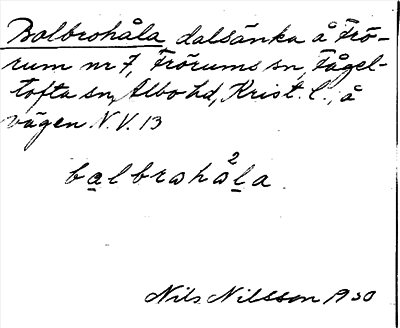 Balbrohåla, dalsänka å Frö-
rum nr 7, Frörums sn, Fågel-
tofta sn, Albo hd, Krist. l., å
vägen N.V. 13
balbrωhω²la
Nils Nilsson 1930